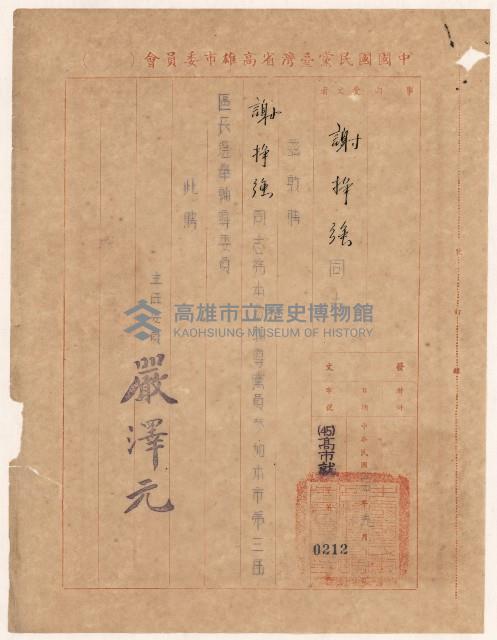 中國國民黨臺灣省高雄市委員會（　　）
事由
受文者
謝掙強同
茲敦聘
謝掙強同志為本 輔導黨員參加本市第三屆
區長選舉輔導委員
此聘
主任委員 嚴澤元
發文
附件
日期 中華民國 年九月
字號 (45)高市就 字第 0212
裝訂線
高雄市立歷史博物館
KAOHSIUNG MUSEUM OF HISTORY